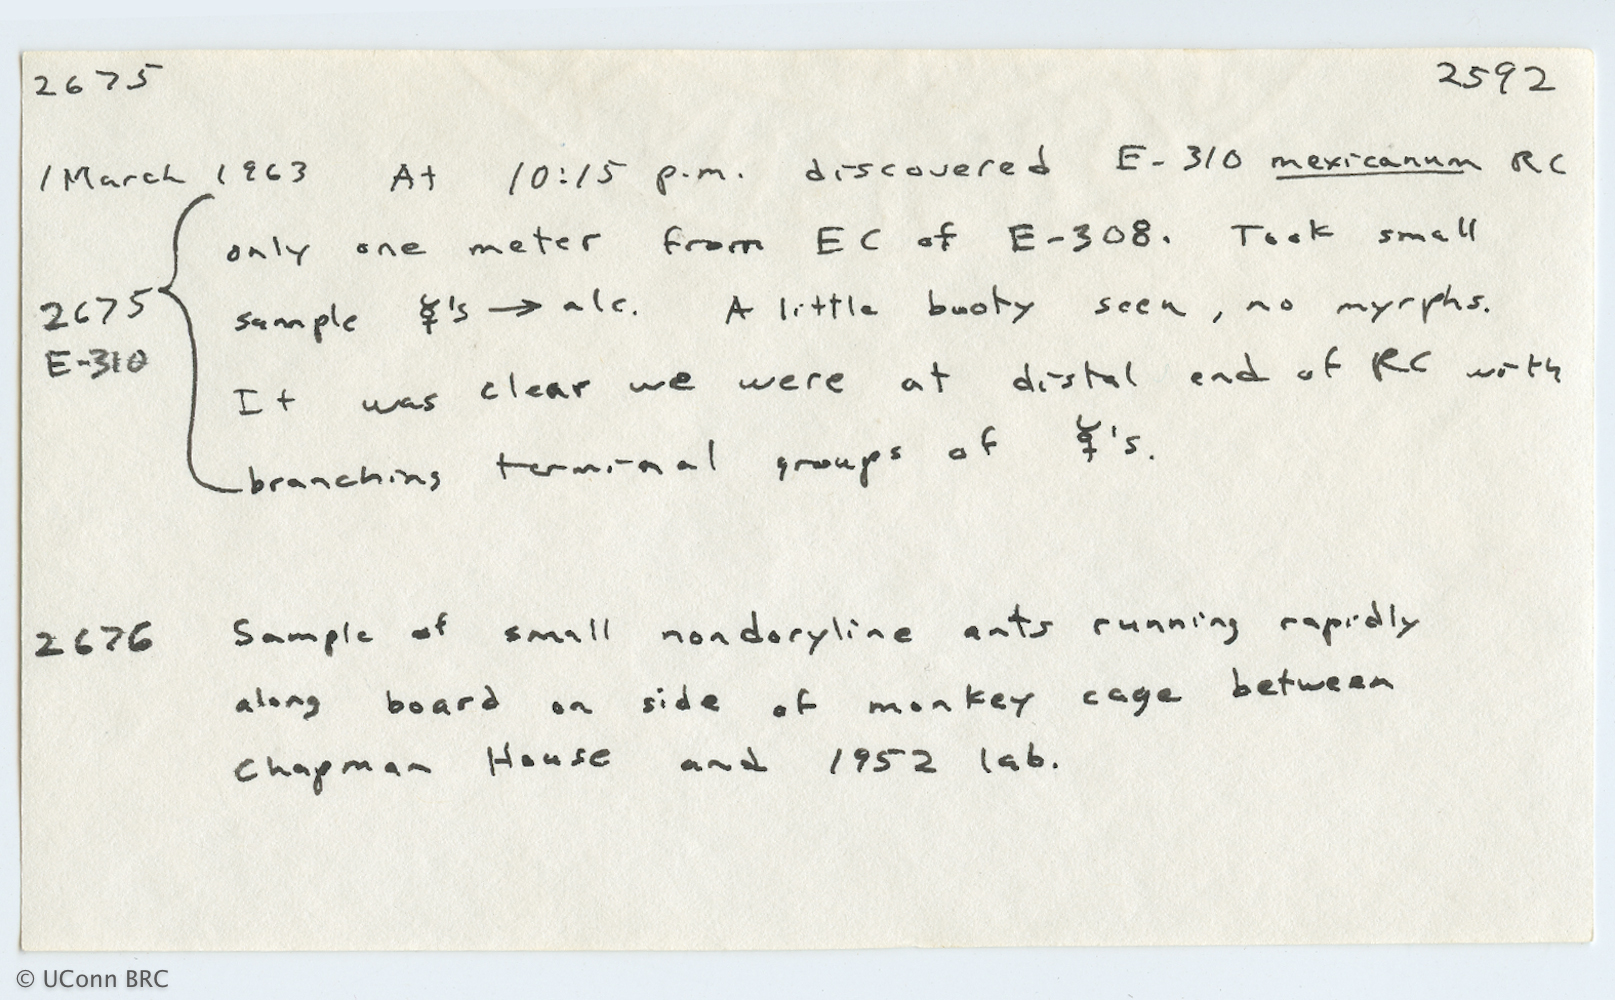 2675 2592
1 March 1963 At 10:15 p.m. discovered E-310 mexicanum RC
only one meter from EC of E-308. Took small
sample ☿'s → alc. A little booty seen, no myrphs.
2675
E-310
It was clear we were at distal end of RC with
branching terminal groups of ☿'s.
2676 Sample of small nondoryline ants running rapidly
along board on side of monkey cage between
Chapman House and 1952 lab.
© UConn BRC